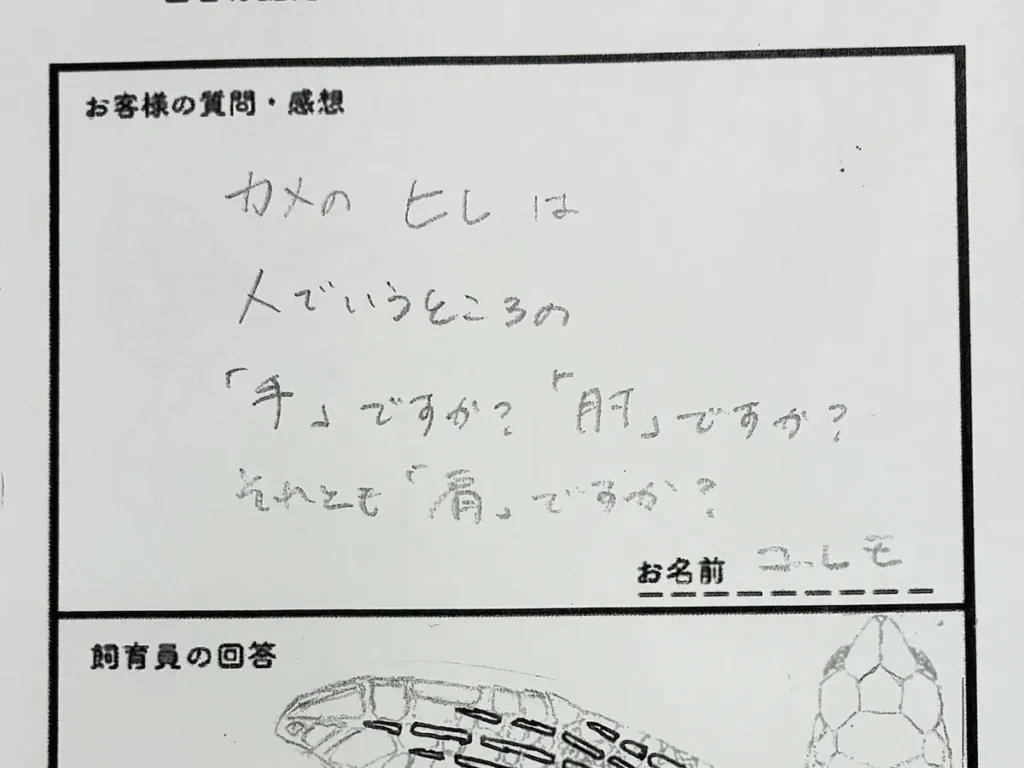 お客様の質問・感想
カメの ヒレ は
人でいうところの
「手」ですか?「肘」ですか?
それとも「肩」ですか?
お名前 コレモ
飼育員の回答